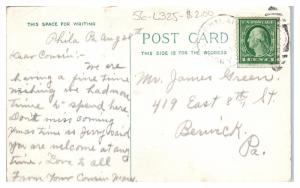 THIS SPACE FOR WRITING
56-L325-$2.00
POST CARD
THIS SIDE IS FOR THE ADDRESS
Phila Pa Aug 20th
Dear Cousin:-
We are
having a fine time
wishing we had more
time to spend here.
Don't miss coming
Xmas time as Jerry said
you are welcome at any
time. Love to all
From Your Cousin Mary
Mr. James Greens.
419 East 8th, St.
Berwick.
Pa.